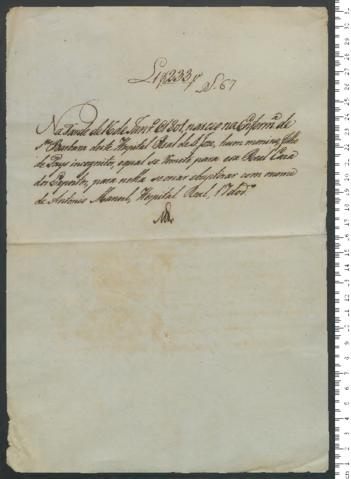 L 1º 233 v
N. 67
Na tarde de 16 de Janrº 1801, nasceo na Enfermª de
Stª Barbara deste Hospital Real de S. Joze, hum menino, filho
de Pays incognitos, o qual se remete para essa Real Caza
dos Expostos, para nella se criar e baptizar com nome
de Antonio Manoel, Hospital Real, 17 do dº